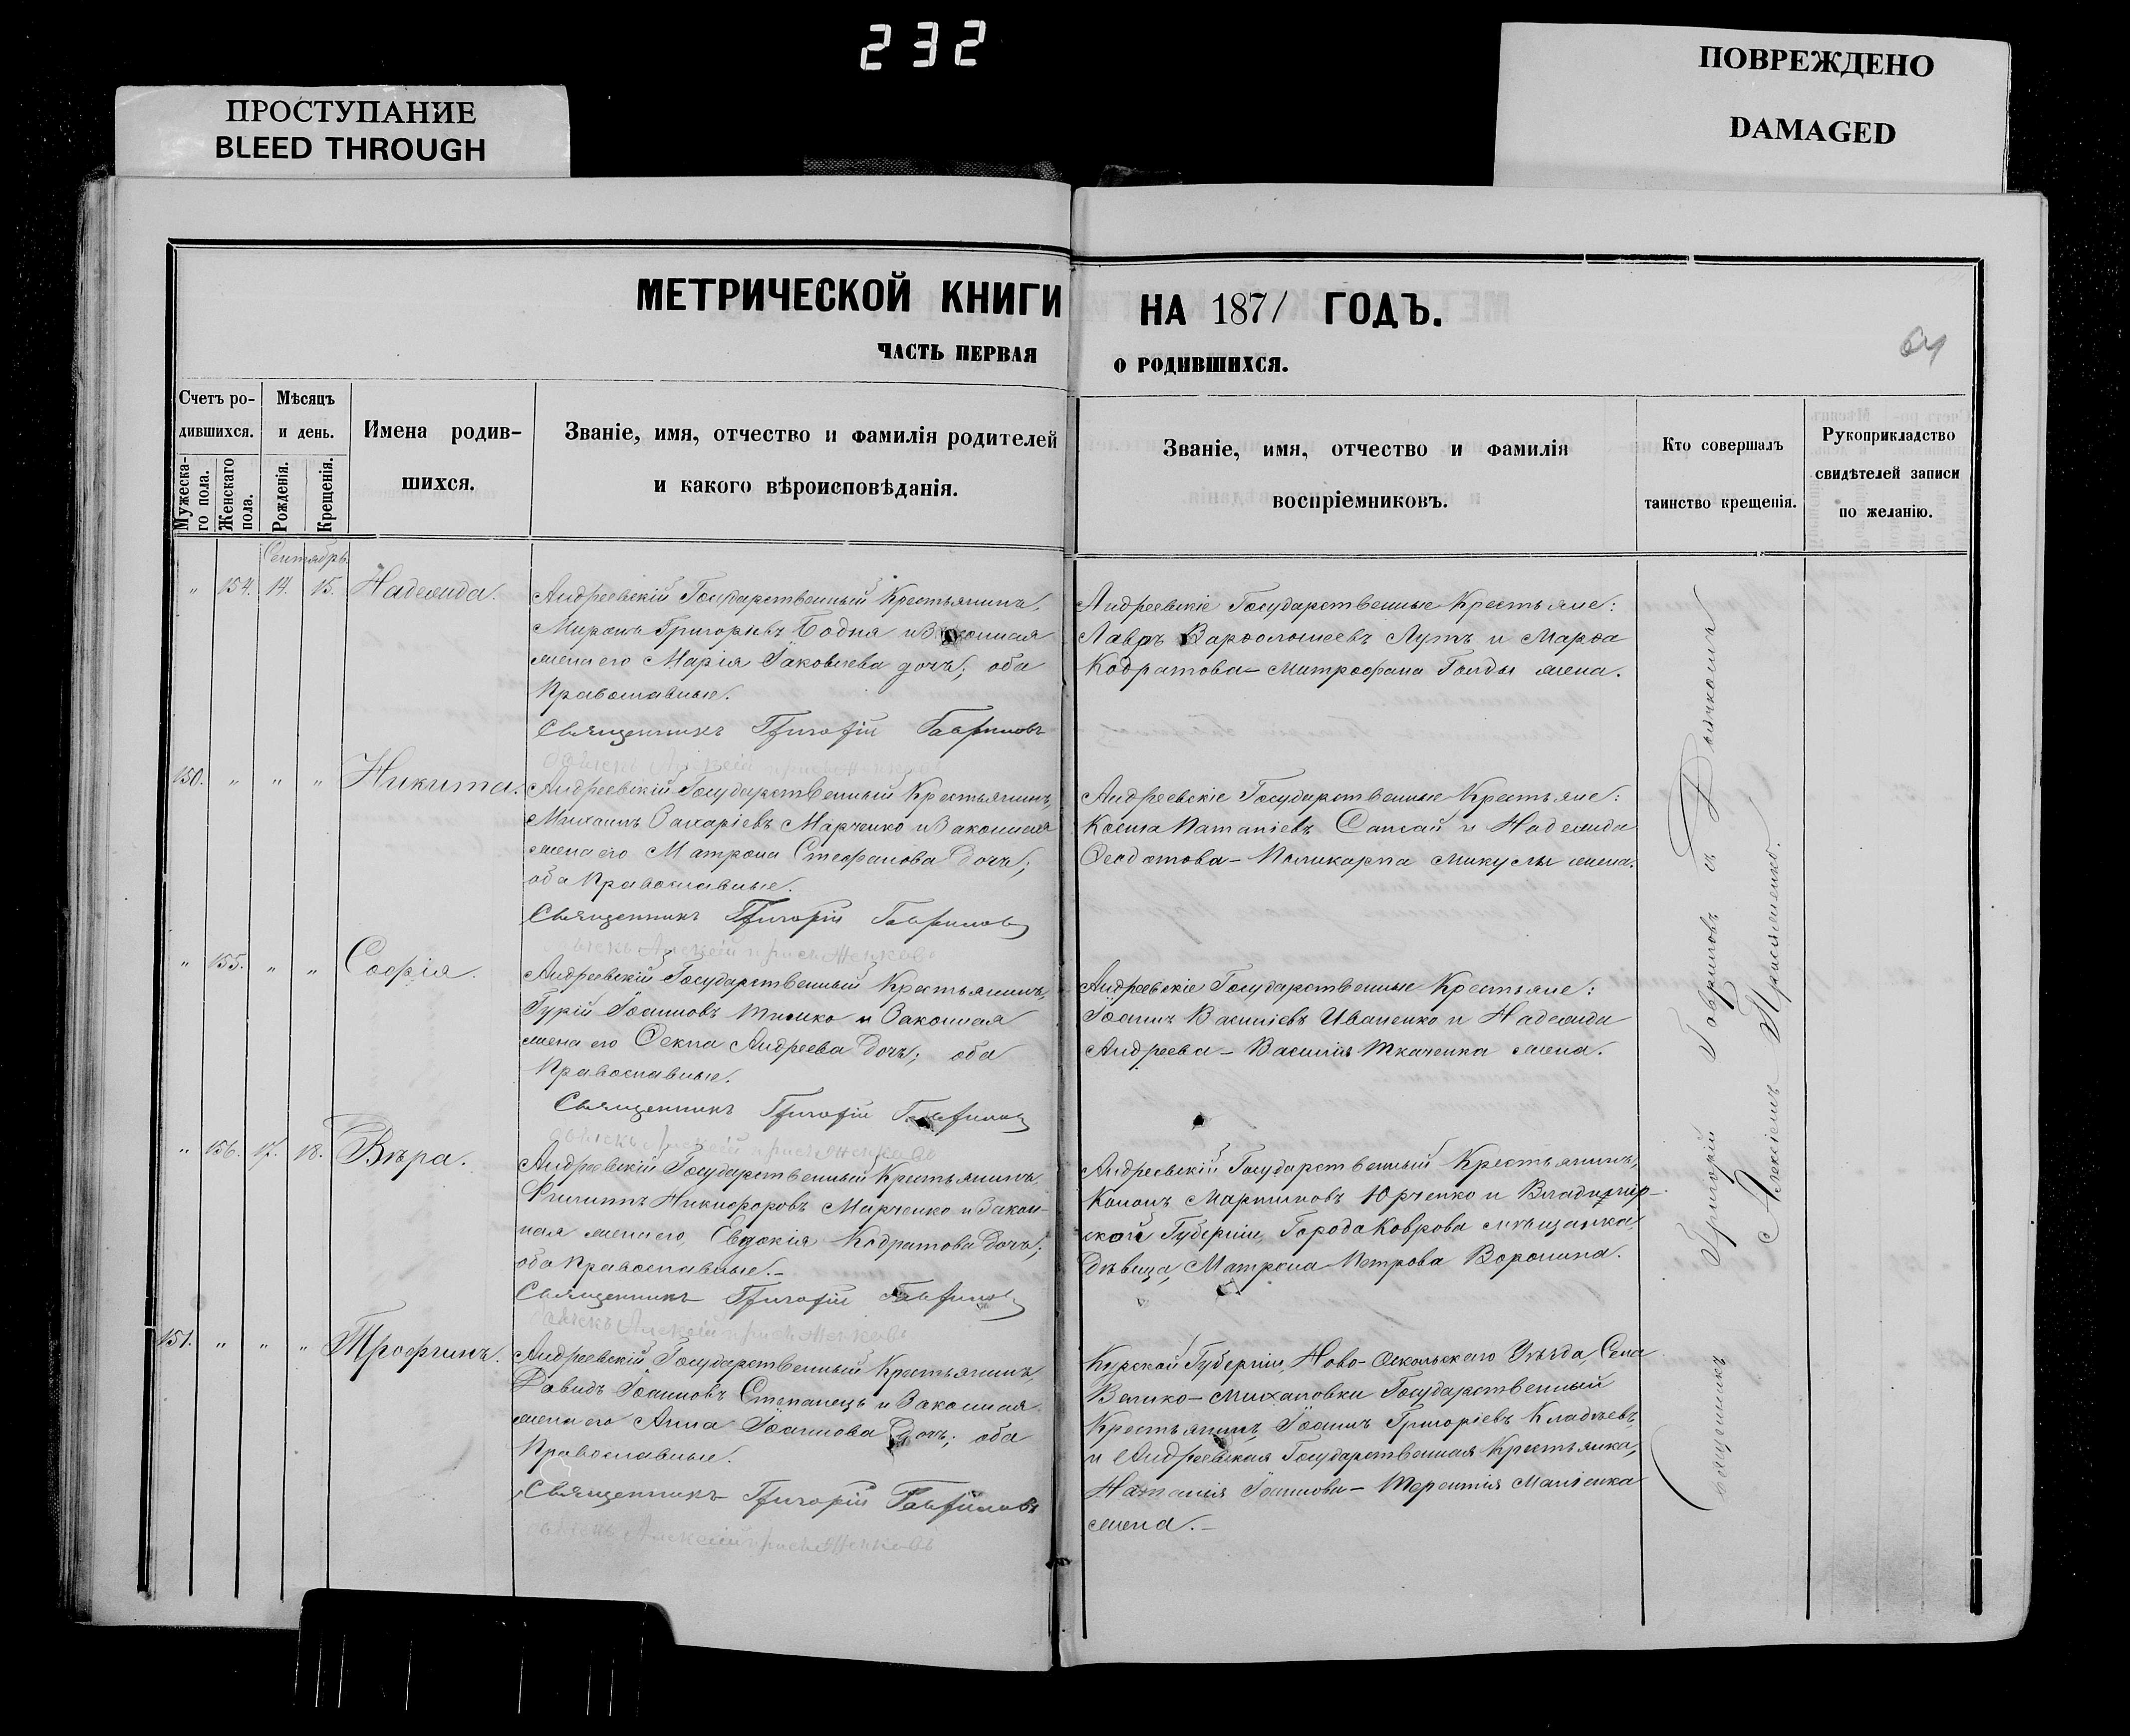 232
ПРОСТУПАНИЕ
BLEED THROUGH
ПОВРЕЖДЕНО
DAMAGED
МЕТРИЧЕСКОЙ КНИГИ НА 1871 ГОДЪ.
ЧАСТЬ ПЕРВАЯ О РОДИВШИХСЯ.
64
Счетъ ро-
дившихся.
Мужеска-
го пола.
Женскаго
пола.
Мѣсяцъ
и день.
Рожденія.
Крещенія.
Имена родив-
шихся.
Званіе, имя, отчество и фамилія родителей
и какого вѣроисповѣданія.
Званіе, имя, отчество и фамилія
воспріемниковъ.
Кто совершалъ
таинство крещенія.
Рукоприкладство
свидѣтелей записи
по желанію.
Сентябрь.
" 154. 14. 15. Надежда.
Андреевскій Государственный Крестьянинъ,
Миронъ Григорьевъ Бодня и Законная
жена его Марія Іаковлева дочь; оба
Православные.
Священникъ Григорій Гавриловъ
Андреевскіе Государственные Крестьяне:
Лавръ Варфоломеевъ Лутъ и Марѳа
Кодратова – Митрофана Голды жена.
150. " " " Никита.
Андреевскій Государственный Крестьянинъ,
Михаилъ Захаріевъ Марченко и Законная
жена его Матрона Стефанова дочь;
оба Православные.
Священникъ Григорій Гавриловъ
Андреевскіе Государственные Крестьяне:
Козма Потапіевъ и Надежда
Ѳеодотова – Поликарпа Микулы жена.
" 155. " " Софія.
Андреевскій Государственный Крестьянинъ,
Гурій Іоанновъ Тимко и Законная
жена его Ѳекла Андреева дочь; оба
Православные.
Священникъ Григорій Гавриловъ
Андреевскіе Государственные Крестьяне:
Іоаннъ Василіевъ Иваненко и Надежда
Андреева – Василія Ткаченка жена.
" 156. 17. 18. Вѣра.
Андреевскій Государственный Крестьянинъ,
Филиппъ Никифоровъ Марченко и Закон-
ная жена его Евдокія Кодратова дочь;
оба Православные. –
Священникъ Григорій Гавриловъ
Андреевскій Государственный Крестьянинъ,
Кононъ Мартиновъ Юрченко и Владимір-
ской Губерніи, Города Коврова мѣщанка,
Дѣвица, Матрона Петрова Воронина.
151. " " " Трофимъ.
Андреевскій Государственный Крестьянинъ
Давидъ Іоанновъ Степанецъ и Законная
жена его Анна Іоаннова дочь; оба
Православные.
Священникъ Григорій Гавриловъ
Курской Губерніи, Ново-Оскольскаго Уѣзда, Села
Велико-Михаловки Государственный
Крестьянинъ, Іоаннъ Григоріевъ Кладіевъ,
и Андреевская Государственная Крестьянка,
Наталія Іоаннова – Терентія жена. –
Священникъ Григорій Гавриловъ съ Дьячкомъ
Алексіемъ